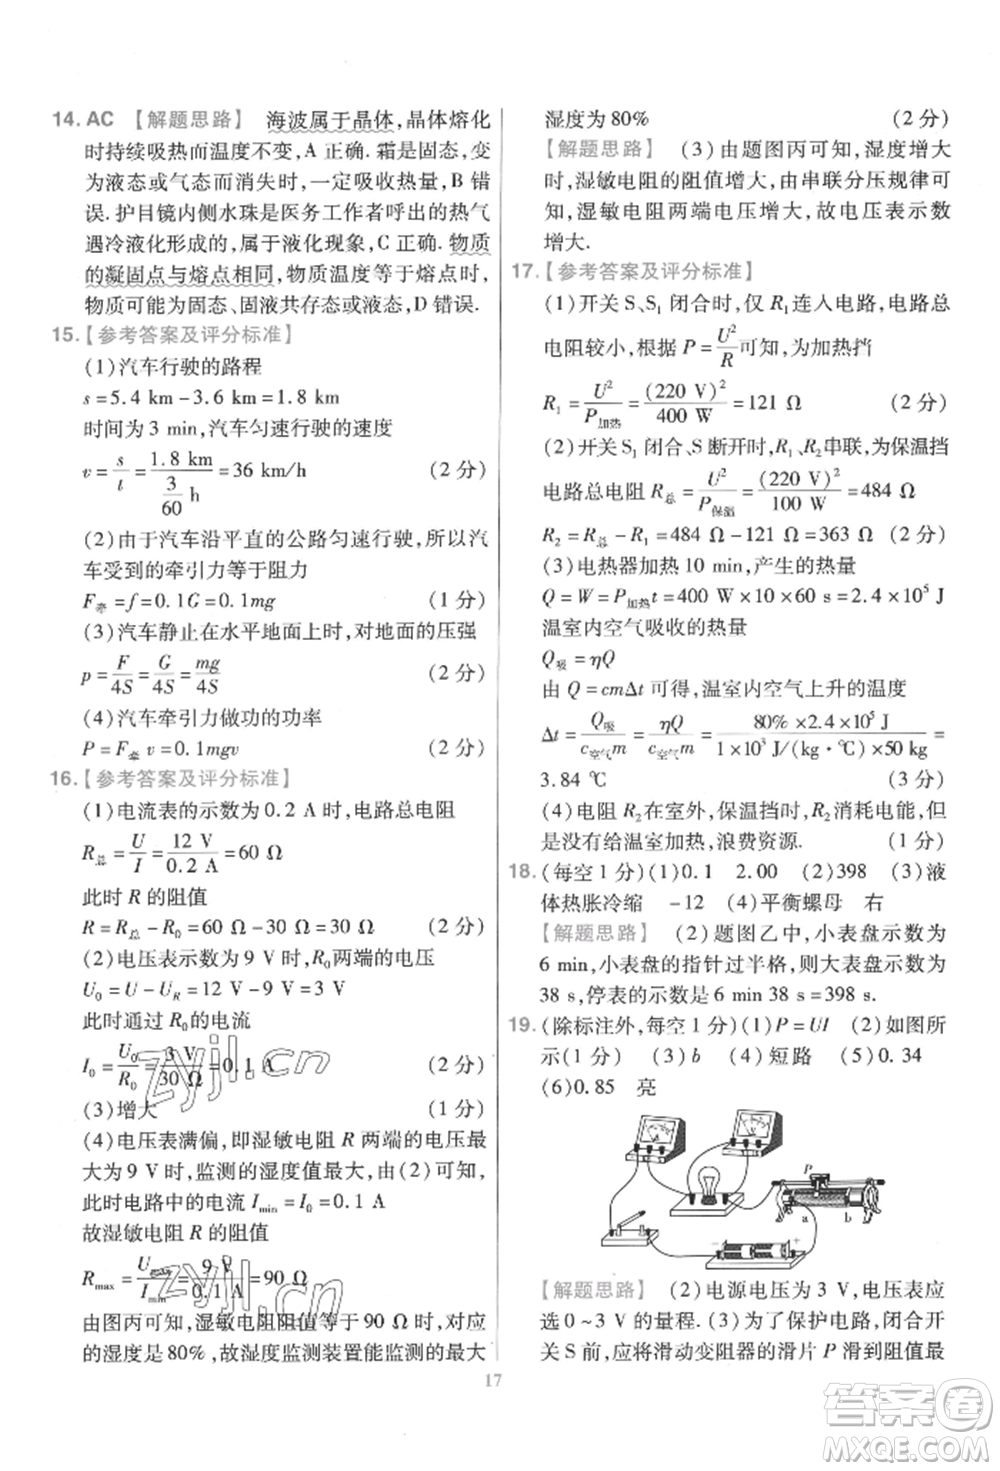 14. AC 【解题思路】 海波属于晶体,晶体熔化
时持续吸热而温度不变,A 正确. 霜是固态,变
为液态或气态而消失时,一定吸收热量,B 错
误. 护目镜内侧水珠是医务工作者呼出的热气
遇冷液化形成的,属于液化现象,C 正确. 物质
的凝固点与熔点相同,物质温度等于熔点时,
物质可能为固态、固液共存态或液态,D 错误.
15.【参考答案及评分标准】
(1)汽车行驶的路程
s = 5.4 km − 3.6 km = 1.8 km
时间为 3 min,汽车匀速行驶的速度
v = s/t = 1.8 km/(3/60 h) = 36 km/h (2 分)
(2)由于汽车沿平直的公路匀速行驶,所以汽
车受到的牵引力等于阻力
F牵 = f = 0.1G = 0.1mg (1 分)
(3)汽车静止在水平地面上时,对地面的压强
p = F/4S = G/4S = mg/4S (2 分)
(4)汽车牵引力做功的功率
P = F牵 v = 0.1mgv (2 分)
16.【参考答案及评分标准】
(1)电流表的示数为 0.2 A 时,电路总电阻
R总 = U/I = 12 V/0.2 A = 60 Ω
此时 R 的阻值
R = R总 − R0 = 60 Ω − 30 Ω = 30 Ω (2 分)
(2)电压表示数为 9 V 时,R0两端的电压
U0 = U − UR = 12 V − 9 V = 3 V
此时通过 R0的电流
I0 = U0/R0 = 3 V/30 Ω = 0.1 A (2 分)
(3)增大 (1 分)
(4)电压表满偏,即湿敏电阻 R 两端的电压最
大为 9 V 时,监测的湿度值最大,由(2)可知,
此时电路中的电流 Imin = I0 = 0.1 A
故湿敏电阻 R 的阻值
Rmax = Umax/Imin = 9 V/0.1 A = 90 Ω
由图丙可知,湿敏电阻阻值等于 90 Ω 时,对应
的湿度是 80%,故湿度监测装置能监测的最大
湿度为 80% (2 分)
【解题思路】 (3)由题图丙可知,湿度增大
时,湿敏电阻的阻值增大,由串联分压规律可
知,湿敏电阻两端电压增大,故电压表示数
增大.
17.【参考答案及评分标准】
(1)开关 S、S1 闭合时,仅 R1连入电路,电路总
电阻较小,根据 P = U²/R 可知,为加热挡
R1 = U²/P加热 = (220 V)²/400 W = 121 Ω (2 分)
(2)开关 S1 闭合、S 断开时,R1、R2串联,为保温挡
电路总电阻 R总 = U²/P保温 = (220 V)²/100 W = 484 Ω
R2 = R总 − R1 = 484 Ω − 121 Ω = 363 Ω (2 分)
(3)电热器加热 10 min,产生的热量
Q = W = P加热 t = 400 W × 10 × 60 s = 2.4 × 10⁵ J
温室内空气吸收的热量
Q吸 = ηQ
由 Q = cmΔt 可得,温室内空气上升的温度
Δt = Q吸/c空气m = ηQ/c空气m = 80% × 2.4 × 10⁵ J/1 × 10³ J/(kg·℃) × 50 kg =
3.84 ℃ (3 分)
(4)电阻 R2在室外,保温挡时,R2消耗电能,但
是没有给温室加热,浪费资源. (1 分)
18. (每空 1 分)(1)0.1 2.00 (2)398 (3)液
体热胀冷缩 −12 (4)平衡螺母 右
【解题思路】 (2)题图乙中,小表盘示数为
6 min,小表盘的指针过半格,则大表盘示数为
38 s,停表的示数是 6 min 38 s = 398 s.
19. (除标注外,每空 1 分)(1)P = UI (2)如图所
示(1 分) (3)b (4)短路 (5)0.34
(6)0.85 亮
P
a b
【解题思路】 (2)电源电压为 3 V,电压表应
选 0~3 V 的量程. (3)为了保护电路,闭合开
关 S 前,应将滑动变阻器的滑片 P 滑到阻值最
17
zyjl.cn
zyjl.cn
答案圈
MXQE.COM